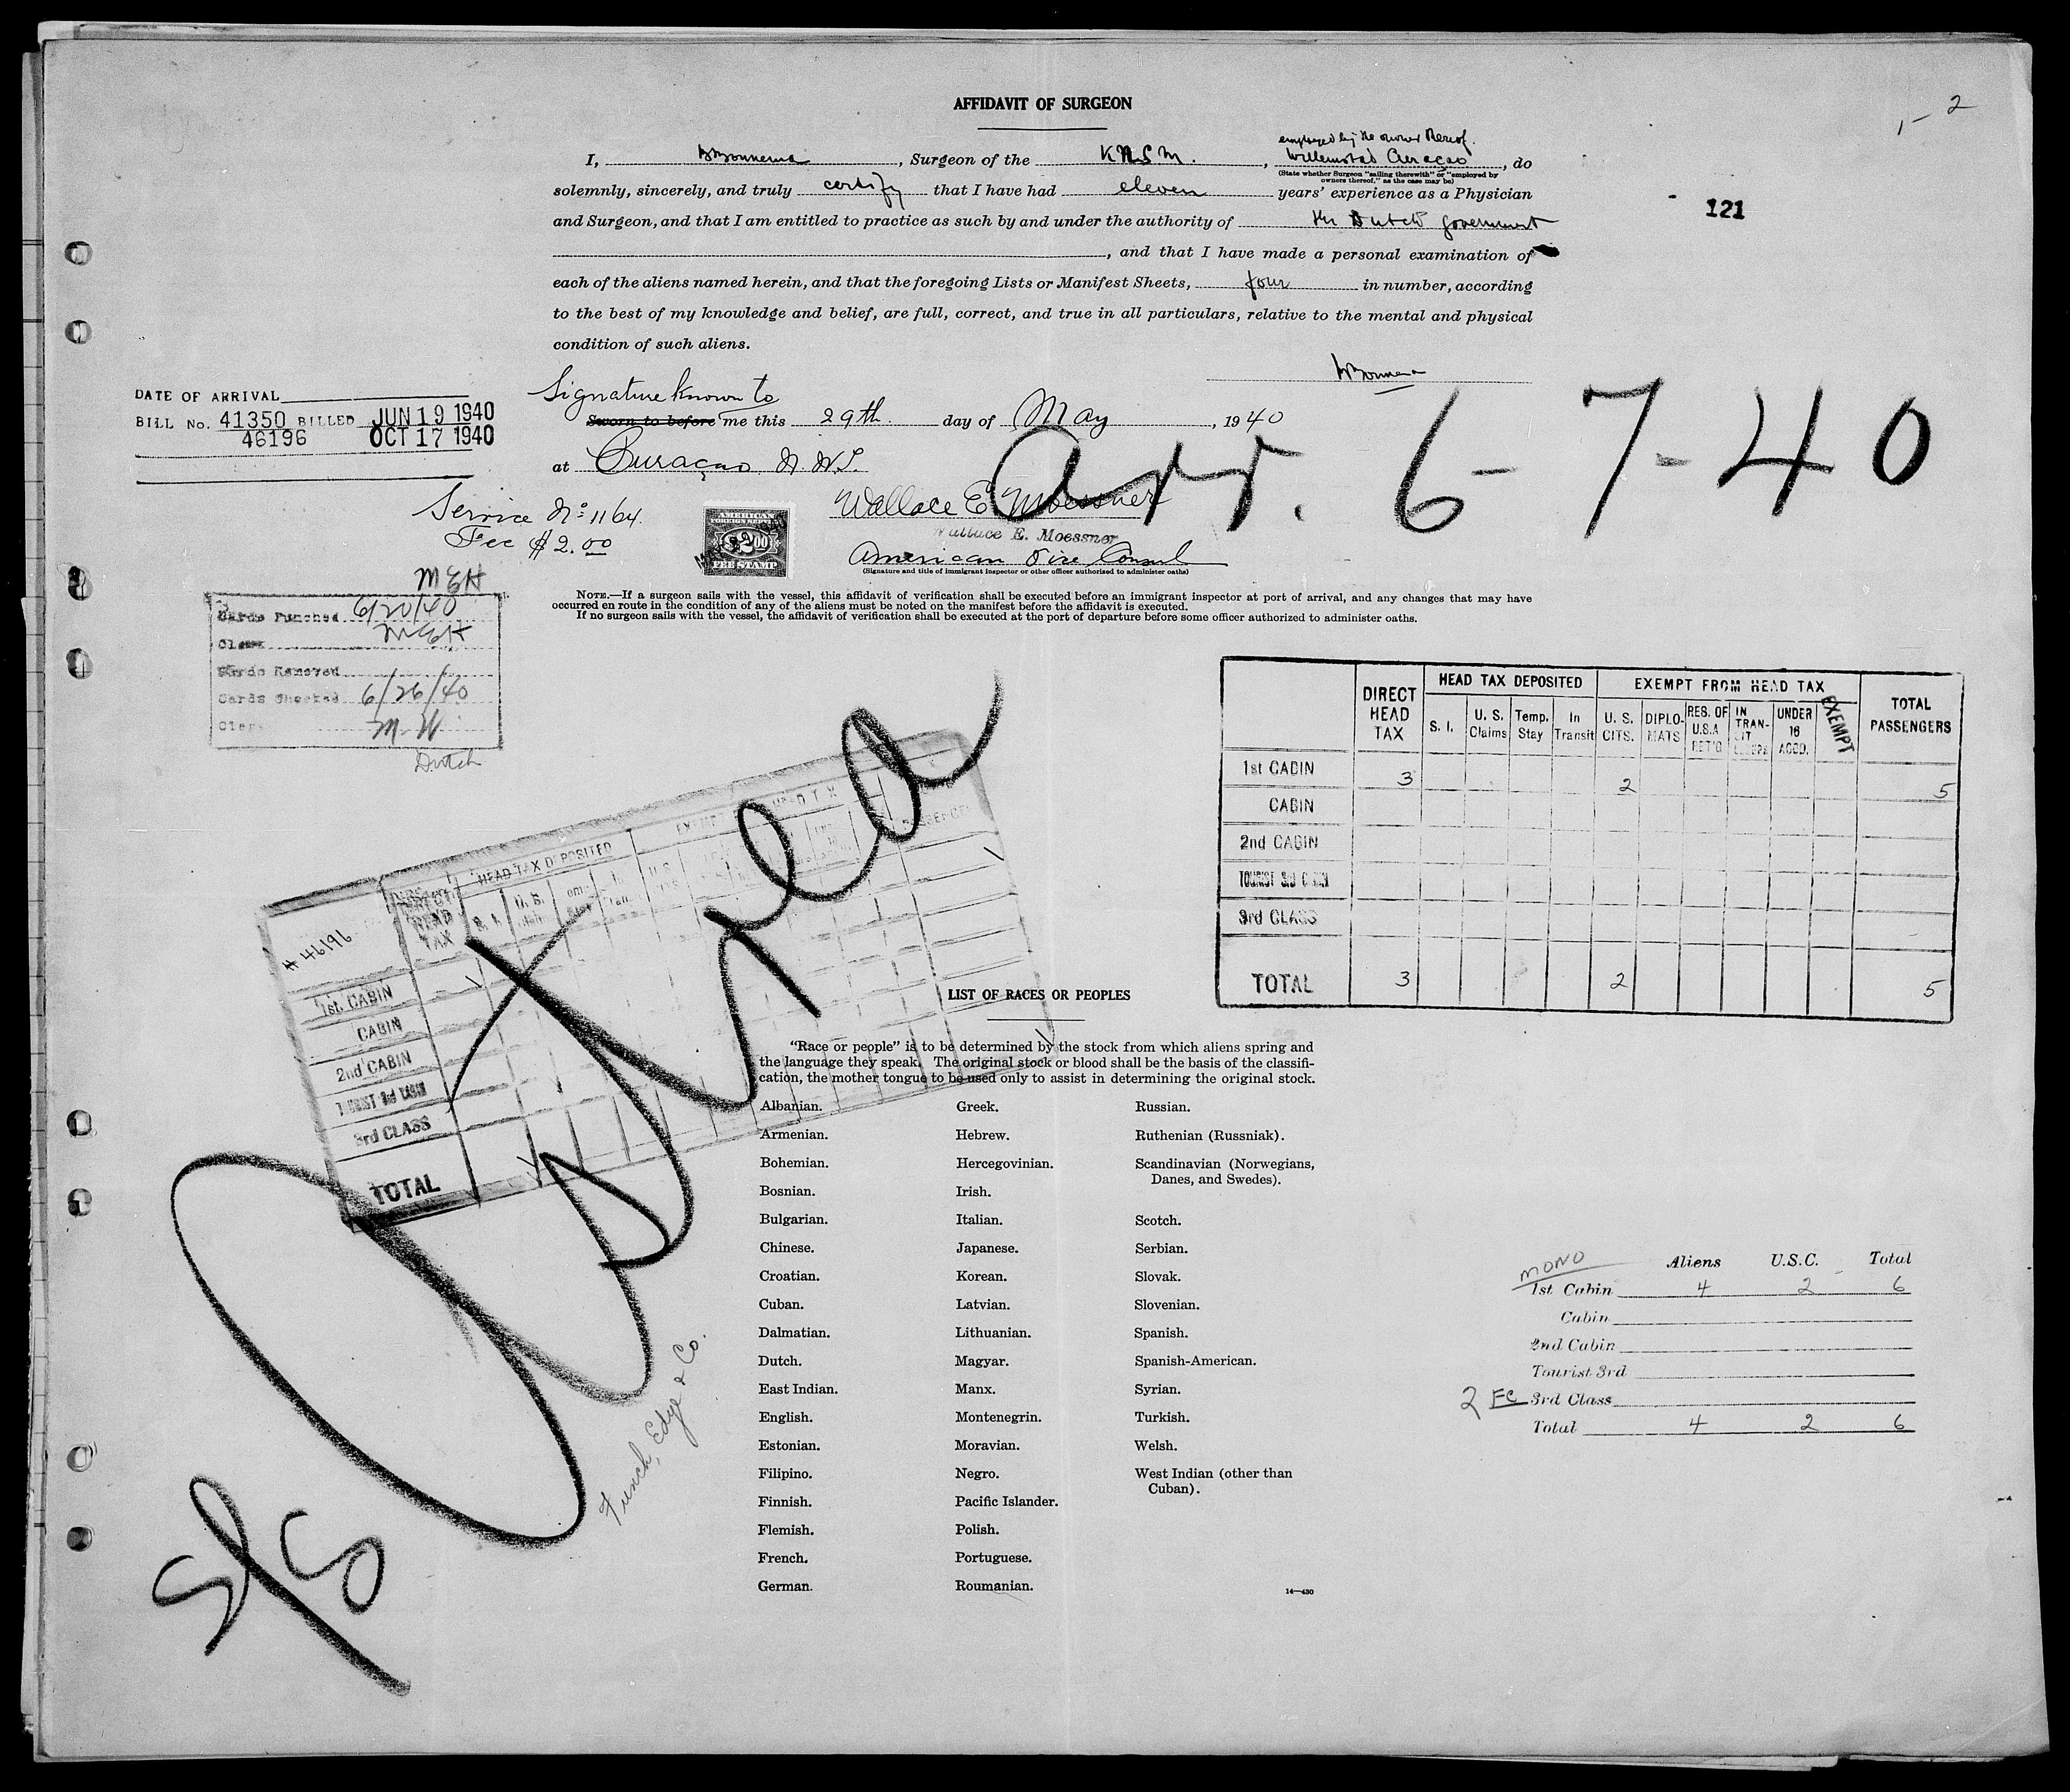 AFFIDAVIT OF SURGEON
1-2
121
employed by the owner thereof.
I, Bonnema, Surgeon of the K.N.S.M., Willemstad Curaçao, do
(State whether Surgeon "sailing therewith" or "employed by
owners thereof," as the case may be)
solemnly, sincerely, and truly certify that I have had eleven years' experience as a Physician
and Surgeon, and that I am entitled to practice as such by and under the authority of the Dutch government
, and that I have made a personal examination of
each of the aliens named herein, and that the foregoing Lists or Manifest Sheets, four in number, according
to the best of my knowledge and belief, are full, correct, and true in all particulars, relative to the mental and physical
condition of such aliens.
Bonnema
Signature known to
Sworn to before me this 29th. day of May, 1940
at Curaçao N.W.I.
Wallace E. Moessner
Wallace E. Moessner
American Vice Consul
(Signature and title of immigrant inspector or other officer authorized to administer oaths)
Arr. 6-7-40
DATE OF ARRIVAL
BILL No. 41350 BILLED JUN 19 1940
46196 OCT 17 1940
Service No 1164.
Fee $2.00
AMERICAN
FOREIGN SERVICE
$2.00
FEE STAMP
NOTE.—If a surgeon sails with the vessel, this affidavit of verification shall be executed before an immigrant inspector at port of arrival, and any changes that may have
occurred en route in the condition of any of the aliens must be noted on the manifest before the affidavit is executed.
If no surgeon sails with the vessel, the affidavit of verification shall be executed at the port of departure before some officer authorized to administer oaths.
MEH
Cards Punched 6/20/40
Clerk MEH
Cards Removed
Cards Checked 6/26/40
Clerk M.W
Dutch
DIRECT HEAD TAX
HEAD TAX DEPOSITED
EXEMPT FROM HEAD TAX
TOTAL PASSENGERS
S. I.
U. S. Claims
Temp. Stay
In Transit
U. S. CITS.
DIPLOMATS
RES. OF U.S.A RET'G
IN TRANSIT
UNDER 16 ACCD.
EXEMPT
1st CABIN 3 2 5
CABIN
2nd CABIN
TOURIST 3rd CABIN
3rd CLASS
TOTAL 3 2 5
# 46196
DIRECT HEAD TAX
HEAD TAX DEPOSITED
S. I.
U. S.
1st. CABIN 1
CABIN
2nd CABIN
TOURIST 3rd CABIN
3rd CLASS
TOTAL 1
S/S
Funch, Edye & Co.
LIST OF RACES OR PEOPLES
"Race or people" is to be determined by the stock from which aliens spring and
the language they speak. The original stock or blood shall be the basis of the classifi-
cation, the mother tongue to be used only to assist in determining the original stock.
Albanian.
Armenian.
Bohemian.
Bosnian.
Bulgarian.
Chinese.
Croatian.
Cuban.
Dalmatian.
Dutch.
East Indian.
English.
Estonian.
Filipino.
Finnish.
Flemish.
French.
German.
Greek.
Hebrew.
Hercegovinian.
Irish.
Italian.
Japanese.
Korean.
Latvian.
Lithuanian.
Magyar.
Manx.
Montenegrin.
Moravian.
Negro.
Pacific Islander.
Polish.
Portuguese.
Roumanian.
Russian.
Ruthenian (Russniak).
Scandinavian (Norwegians,
Danes, and Swedes).
Scotch.
Serbian.
Slovak.
Slovenian.
Spanish.
Spanish-American.
Syrian.
Turkish.
Welsh.
West Indian (other than
Cuban).
14—430
MONO Aliens U.S.C. Total
1st Cabin 4 2 6
Cabin
2nd Cabin
Tourist 3rd
2 FC 3rd Class
Total 4 2 6